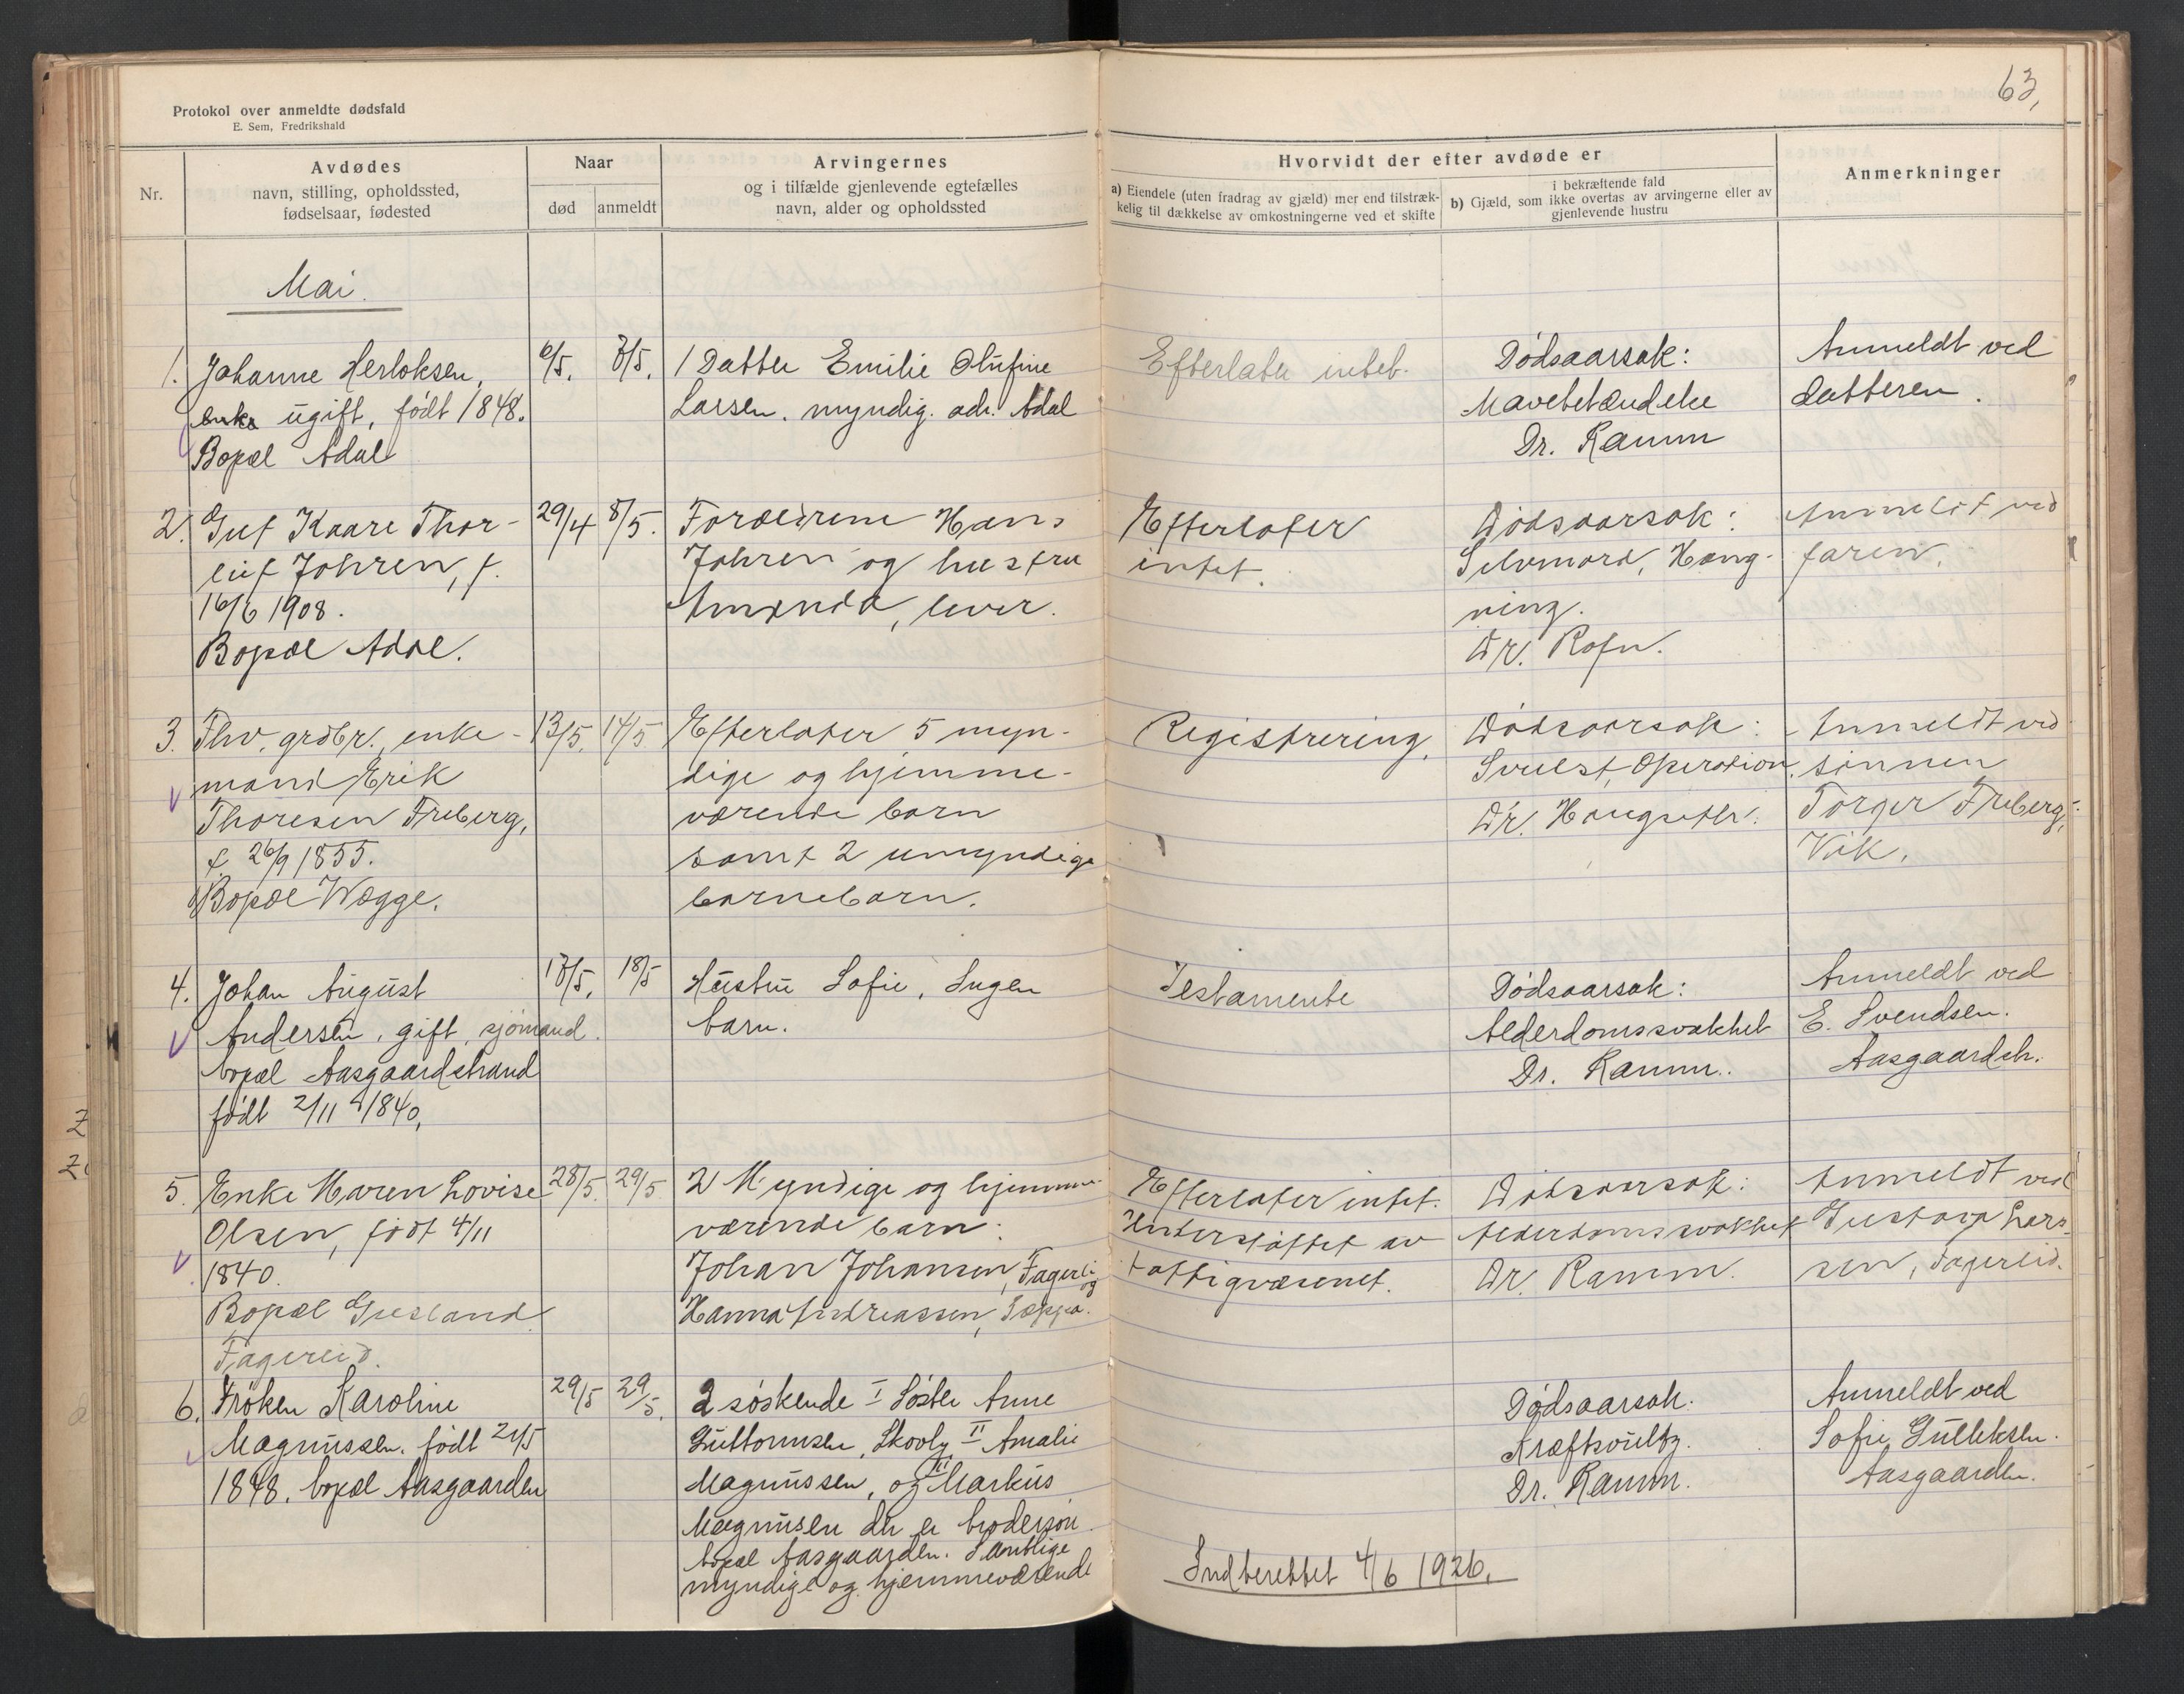 63,
Protokol over anmeldte dødsfald
E. Sem, Fredrikshald
Nr.
Avdødes
navn, stilling, opholdssted,
fødselsaar, fødested
Naar
død
anmeldt
Arvingernes
og i tilfælde gjenlevende egtefælles
navn, alder og opholdssted
Hvorvidt der efter avdøde er
a) Eiendele (uten fradrag av gjæld) mer end tilstræk-
kelig til dækkelse av omkostningerne ved et skifte
i bekræftende fald
b) Gjæld, som ikke overtas av arvingerne eller av
gjenlevende hustru
Anmerkninger
Mai.
1. Johanne Herloksen,
enke ugift, født 1848.
Bopæl Adal
6/5. 7/5.
1 Datter Emilie Olufine
Larsen. myndig. adr. Adal
Efterlater intet.
Dødsaarsak:
Mavebetændelse
Dr. Ramm
Anmeldt ved
datteren.
2. Gut Kaare Thor-
leif Johren, f.
16/6 1908.
Bopæl Adal.
29/4 8/5.
Forældrene Hans
Johren og hustru
Amanda, lever.
Efterlater
intet.
Dødsaarsak:
Selvmord, Hæng-
ning.
Dr. Rafn.
Anmeldt ved
faren.
3. Fhv. grdbr., enke-
mand Erik
Thoresen Freberg,
f. 26/9 1855.
Bopæl Wægge.
13/5. 14/5.
Efterlater 5 myn-
dige og hjemme-
værende barn
samt 2 umyndige
barnebarn.
Registrering.
Dødsaarsak:
Svulst, Operation.
Dr.
Anmeldt ved
sønnen
Torger Freberg,
Vik.
4. Johan August
Andersen, gift, sjømand.
bopæl Aasgaardstrand
født 2/11 1840,
17/5. 18/5
Hustru Sofie, Ingen
barn.
Testamente
Dødsaarsak:
Alderdomssvakhet
Dr. Ramm.
Anmeldt ved
E. Svendsen.
Aasgaardstr.
5. Enke Maren Lovise
Olsen, født 4/11
1840.
Bopæl Gresland
Fagerlid.
28/5. 29/5.
2 Myndige og hjemme-
værende barn:
Johan Johansen, Fagerli
og
Hanna Andreassen,
Efterlater intet.
Understøttet av
fattigvæsenet.
Dødsaarsak:
Alderdomssvakhet
Dr. Ramm.
Anmeldt ved
Gustava Lars-
sen, Fagerlid.
6. Frøken Karoline
Magnussen. født 24/5
1848. bopæl Aasgaarden
29/5 29/5.
2 søskende I Søster Anne
Guttormsen, Skovly II Amalie
Magnussen, og III Markus
Magnusen der er brodersøn.
bopæl Aasgaarden. Samtlige
myndige og hjemmeværende
Dødsaarsak.
Kræftsvulst.
Dr. Ramm.
Anmeldt ved
Sofie Gulliksen.
Aasgaarden.
Indberettet 4/6 1926.